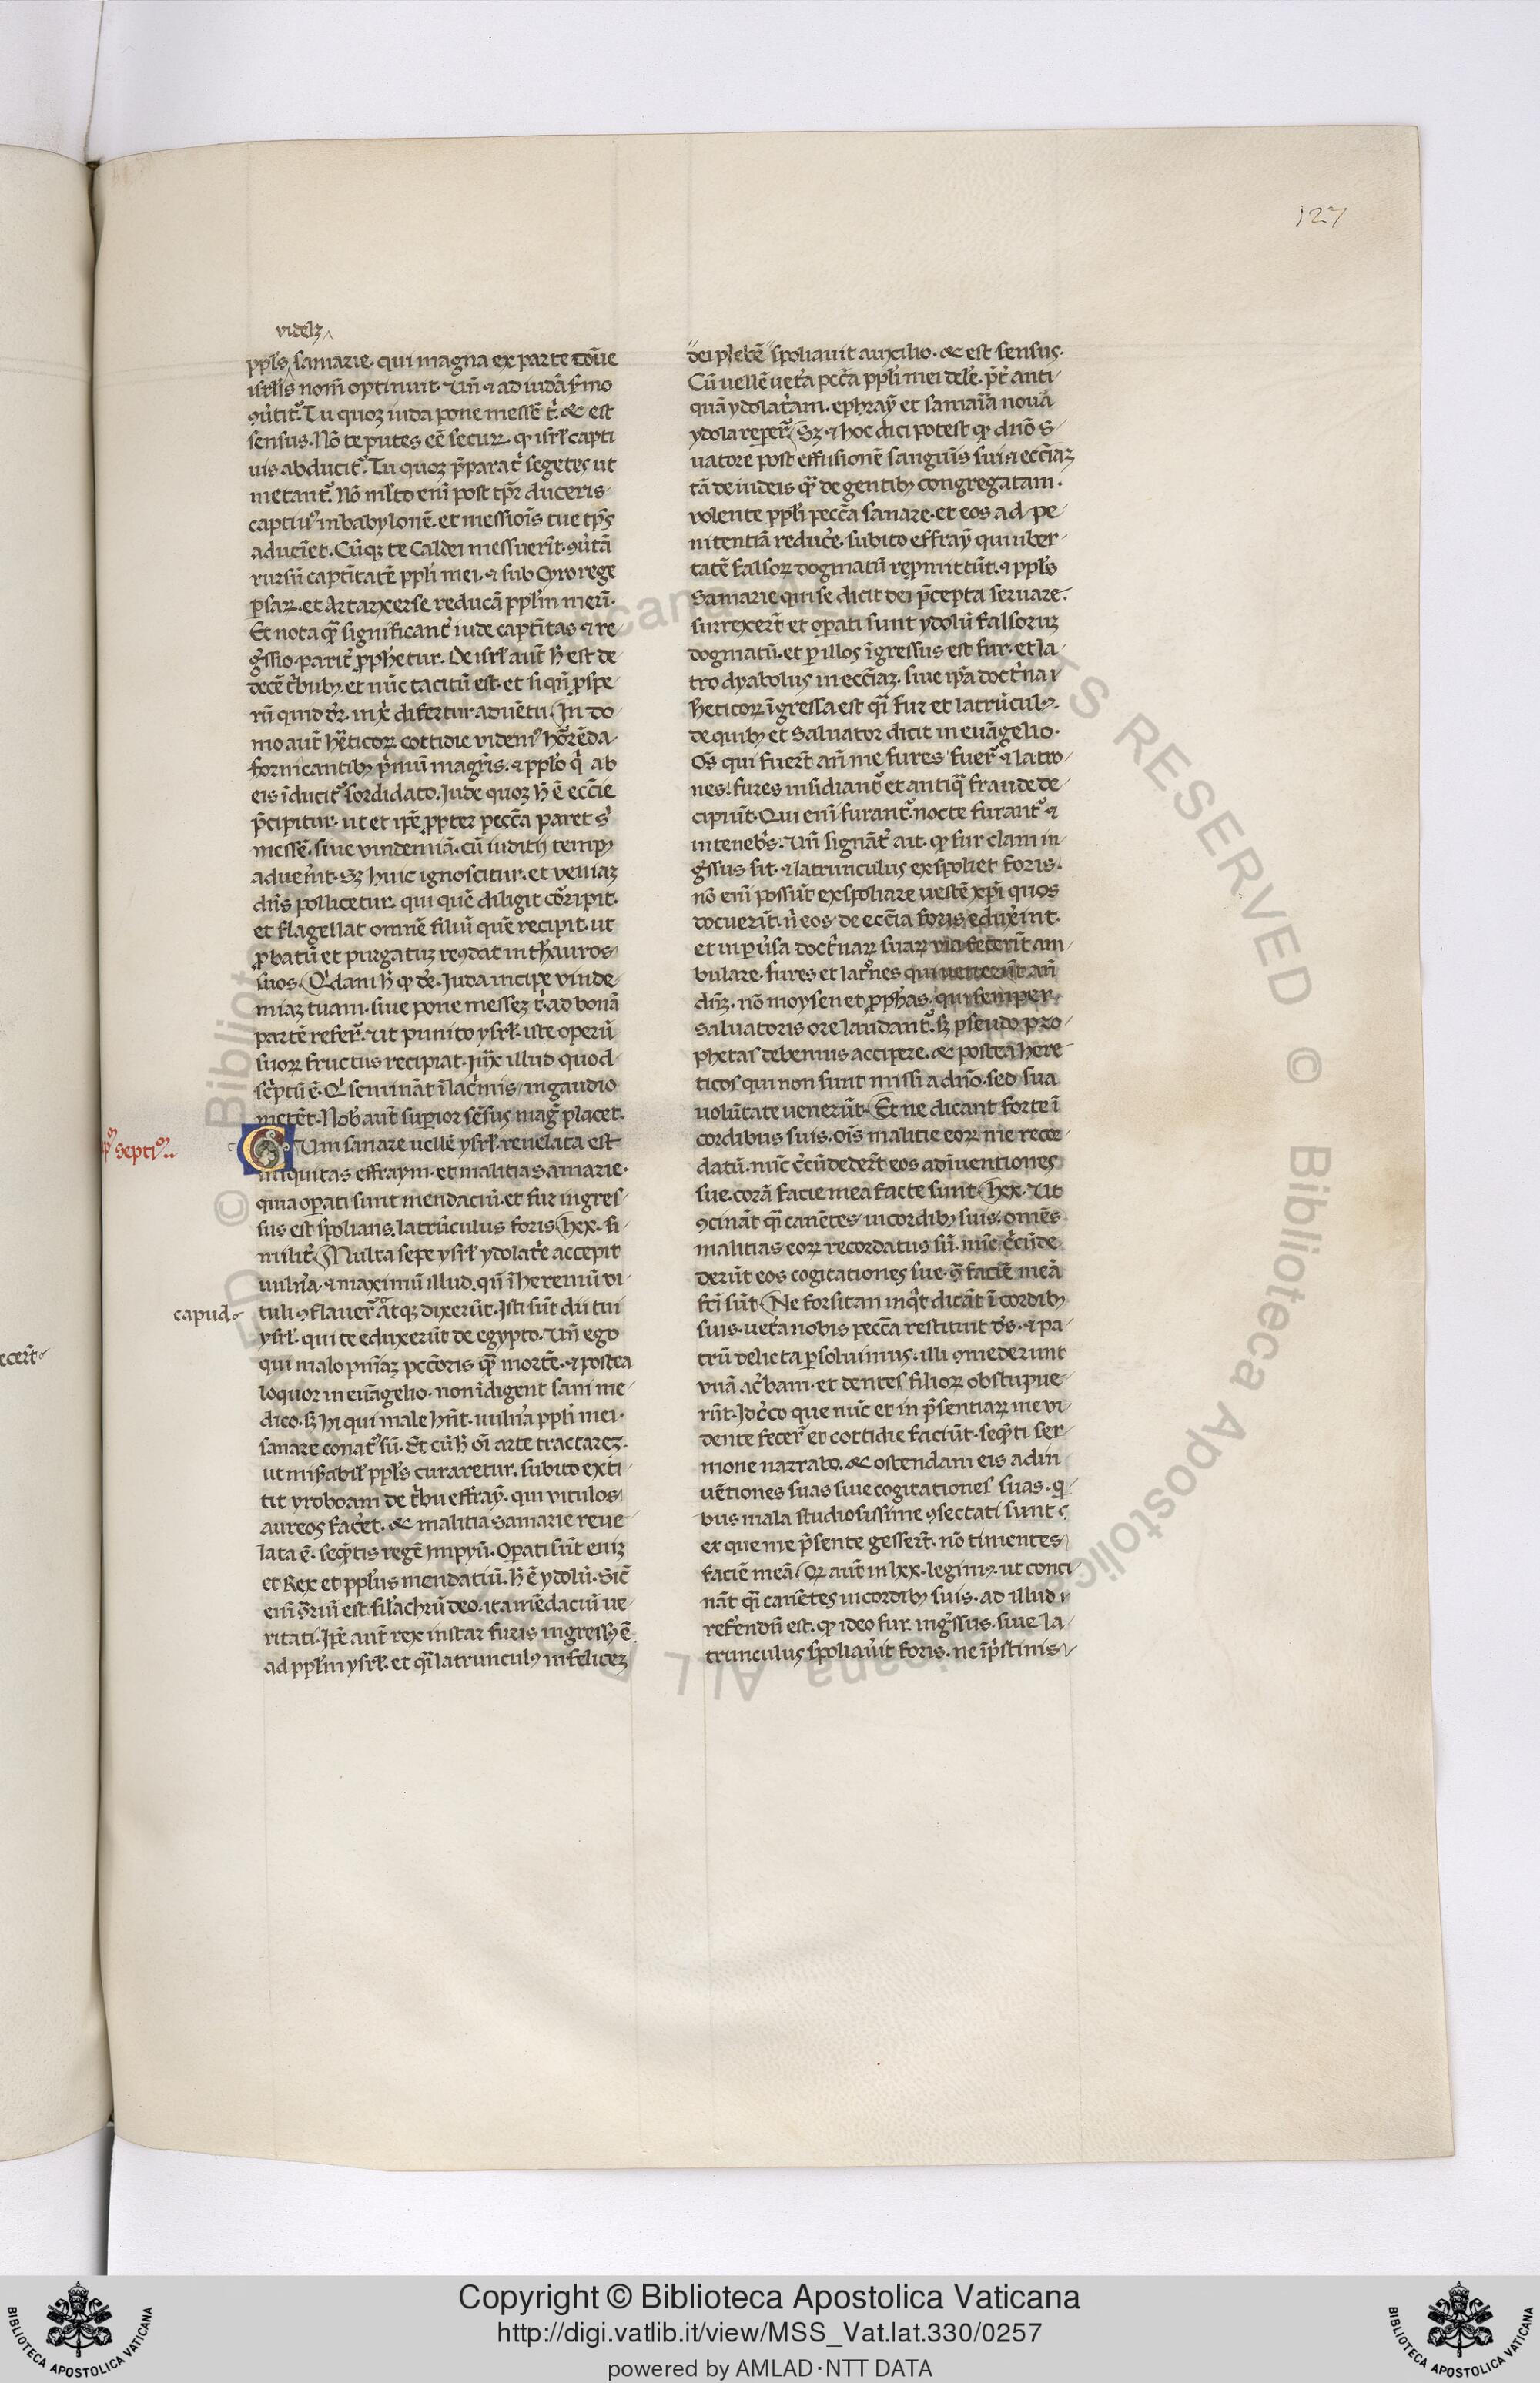 127
videlꝫ
ppl̃s samarie. qui magna ex parte tociꝰ
isrl̃is nom̃ optinuit. Vñ ⁊ ad iudã s̾mo
ꝯũtit᷑. Tu quoꝫ iuda pone messẽ t̾. & est
sensus. Nõ te putes eẽ secuꝝ. ꝙ isrl̃ capti
uis abducit᷑. Tu quoꝫ p̃parat̾ segetes ut
metant᷑. Nõ ml̃to eni᷑ post tp̃r duceris
captiuꝰ in babylonẽ. et messiõis tue tp̃s
adueñiet. Cũqꝫ te Caldei messuerĩt. ꝯũtã
rursũ captiũitatẽ ppl̃i mei. ⁊ sub Cyro rege
ꝑsaꝝ. et Artarxerse reducã ppl̃m meũ.
Et nota qꝫ significant̾ iude captĩtas ⁊ re
g̾ssio. parit̾ ꝓphetur. De isrl̃ aut̃ h̾ est de
decẽ t̾bubꝫ. et nũc tacitũ est. et si qñ ꝓspe
rũ quid dr̃. in xp̃i differtur aduẽtũ. In do
mo aut̃ h̾eticoꝝ cottidie videmꝰ horrẽda.
fornicantibꝫ p̾mũ magr̃is. ⁊ ppl̃o q̾ ab
eis ĩducit᷑ sordidato. Jude quoꝫ h̾ ẽ ecc̃ie
p̃cipitur. ut et ip̃e ꝓpter pecc̃a paret s̾
messẽ. siue vindemiã. cũ iudicij tempꝰ
aduen̾it. Sꝫ huic ignoscitur. et veniaꝫ
dñs pollicetur. qui quẽ diligit corripit.
et flagellat omnẽ filiũ quẽ recipit. ut
ꝓbatũ et purgatuꝫ reꝯdat in thauros
suos. Q̾dam h̾ ꝙ dr̃. Juda incipe vinde
miaꝫ tuam. siue pone messeꝫ t̾. ad bonã
partẽ referũt. ut punito ysrl̃. iste operũ
suoꝝ fructus recipiat. Jux̾ illud quod
sc̾ptũ ẽ. Q̾ seminãt ĩ lac̾mis, in gaudio
metẽt. Nob̾ aut̃ suꝑior sẽsus mag̾ placet.
Cap̃ septiꝰ
Cum sanare uellẽ ysrl̃. reuelata est
iniquitas effraym. et malitia samarie.
quia oꝑati sunt mendaciũ. et fur ingres
sus est spolians. latrũculus foris. lxx. si
milit̾. Multa sepe ysrl̃ ydolat̾e accepit
uulñ̾a. ⁊ maximũ illud. qñ ĩ heremũ vi
capud
tuli ꝯflauer̃t atqꝫ dixerũt. Isti sũt dii tui
ysrl̃. qui te eduxerũt de egypto. Vñ ego
qui malo pñiaꝫ pecc̃oris qꝫ mortẽ. ⁊ postea
loquor in euãgelio. non ĩdigent sani me
dico. sꝫ hi qui male hñt. uulñ̾a ppl̃i mei.
sanare conat᷑ sũ. Et cũ h̾ oĩ arte tractareꝫ.
ut mis̾abil̃ ppl̃s curaretur. subito exti
tit yroboam de t̾bu effraỹ. qui vitulos
aureos fac̾et. & malitia samarie reue
lata ẽ. seq̃ntis regẽ impyũ. Oꝑati sũt eniꝫ
et Rex et ppl̃us mendatiũ. h̾ ẽ ydolũ. Sic̾
eni᷑ ꝯt̾riũ est sil̃achrũ deo. ita mẽdaciũ ue
ritati. Ip̃e aut̃ rex instar furis ingressꝰ ẽ
ad ppl̃m ysrl̃. et q̾i latrunculꝰ infeliceꝫ
dei plebẽ spoliauit auxilio. & est sensus.
Cũ uellẽ uet̾a pecc̃a ppl̃i mei del̃e. p̃t̾ anti
quã ydolat̾am. ephraỹ et samaria nouã
ydola reꝑer̃t. Sꝫ ⁊ hoc dici potest ꝙ dño S̾
uatore post effusionẽ sanguĩs sui. ⁊ ecc̃iaꝫ
tã de iudeis qꝫ de gentibꝫ congregatam.
volente ppl̃i pecc̃a sanare. et eos ad pe
nitentiã reduc̾e. subito effraỹ qui uber
tatẽ falsoꝝ dogmatũ repmittũt. ⁊ ppl̃s
Samarie qui se dicit dei p̃cepta seruare.
surrexer̃t et oꝑati sunt ydolũ falsoruꝫ
dogmatũ. et ꝑ illos ĩgressus est fur. et la
tro dyabolus in ecc̃iaꝫ. siue ip̃a doct̾na
h̾eticoꝝ ĩgressa est q̾i fur et latrũculꝰ.
de quibꝫ et Saluator dicit in euãgelio.
Oẽs qui fuer̃t añ me fures fuer̃t ⁊ latro
nes. fures insidiant᷑ et antiq̃ fraude de
cipiũt. Qui eni᷑ furant᷑. nocte furant᷑ ⁊
in teneb̾s. Vñ signãt̾ ait. ꝙ fur clam in
g̾ssus sit. ⁊ latrunculus exspoliet foris.
nõ eni᷑ possũt exspoliare uestẽ xp̃i quos
docuerũt. ñ eos de ecc̃ia foris eduxerint.
et in ꝑũsa doct̾naꝝ suaꝝ via fecerĩt am
bulare. fures et lat̾nes qui uenerũt añ
dñꝫ. nõ moysen et ꝓph̾as. qui semper
Saluatoris ore laudant᷑. sꝫ pseudo pro
phetas debemus accipere. & postea here
ticos qui non sunt missi a dño. sed sua
uolũtate uenerũt. Et ne dicant forte ĩ
cordibus suis. oĩs malitie eoꝝ me recor
datũ. nũc c̾cũdeder̃t eos adĩuentiones
sue. corã facie mea facte sunt. lxx. Ut
ꝯcinãt q̾i canẽtes in cordibꝫ suis. omẽs
malitias eoꝝ recordatus sũ. nũc c̾cũde
derũt eos cogitationes sue. ꝯ̾ faciẽ meã
fc̃i sũt. Ne forsitan inq̾t dicãt ĩ cordibꝫ
suis. uet̾a nobis pecc̃a restituit ds̃. ⁊ pa
trũ delicta ꝑsoluimus. illi ꝯmederunt
vuã ac̾bam. et dentes filioꝝ obstupue
rũt. Idc̾co que nũc et in p̃sentiaꝝ me vi
dente fecer̃t et cottidie faciũt. seq̃nti ser
mone narrabo. & ostendam eis adin
uẽtiones suas siue cogitationes suas. q̾
bus mala studiosissime ꝯsectati sunt
et que me p̃sente gesser̃t. nõ timentes
faciẽ meã. Qꝫ aut̃ in lxx. legimꝰ. ut conci
nãt q̾i canẽtes in cordibꝫ suis. ad illud
refer̾endũ est. ꝙ ideo fur. ing̾ssus. siue la
trunculus spoliauit foris. ne ĩp̃stinis
ecer̃t
Copyright © Biblioteca Apostolica Vaticana
http://digi.vatlib.it/view/MSS_Vat.lat.330/0257
powered by AMLAD·NTT DATA
BIBLIOTECA APOSTOLICA VATICANA
BIBLIOTECA APOSTOLICA VATICANA